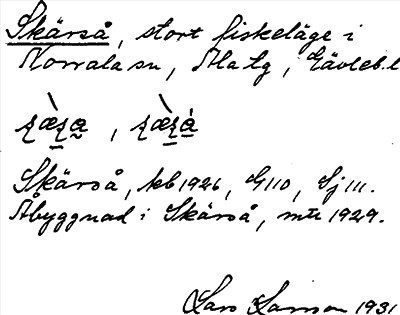 Skärså, stort fiskeläge i
Norrala sn, Hlg, Gävleb. l
Skärså, kb 1926, G 110, Sj 111.
Åbyggnad i Skärså, mtr 1929.
Lars Larsson 1931